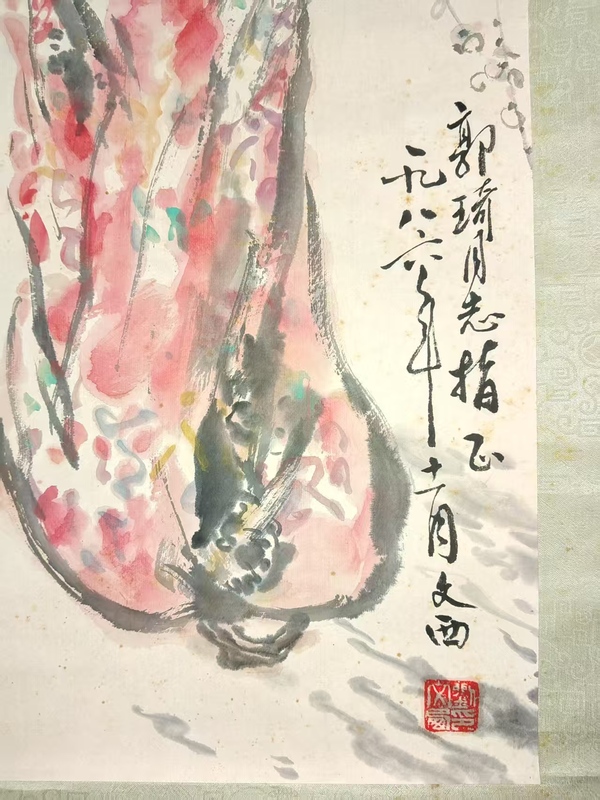 郭琦同志指正
一九八六年十一月文西